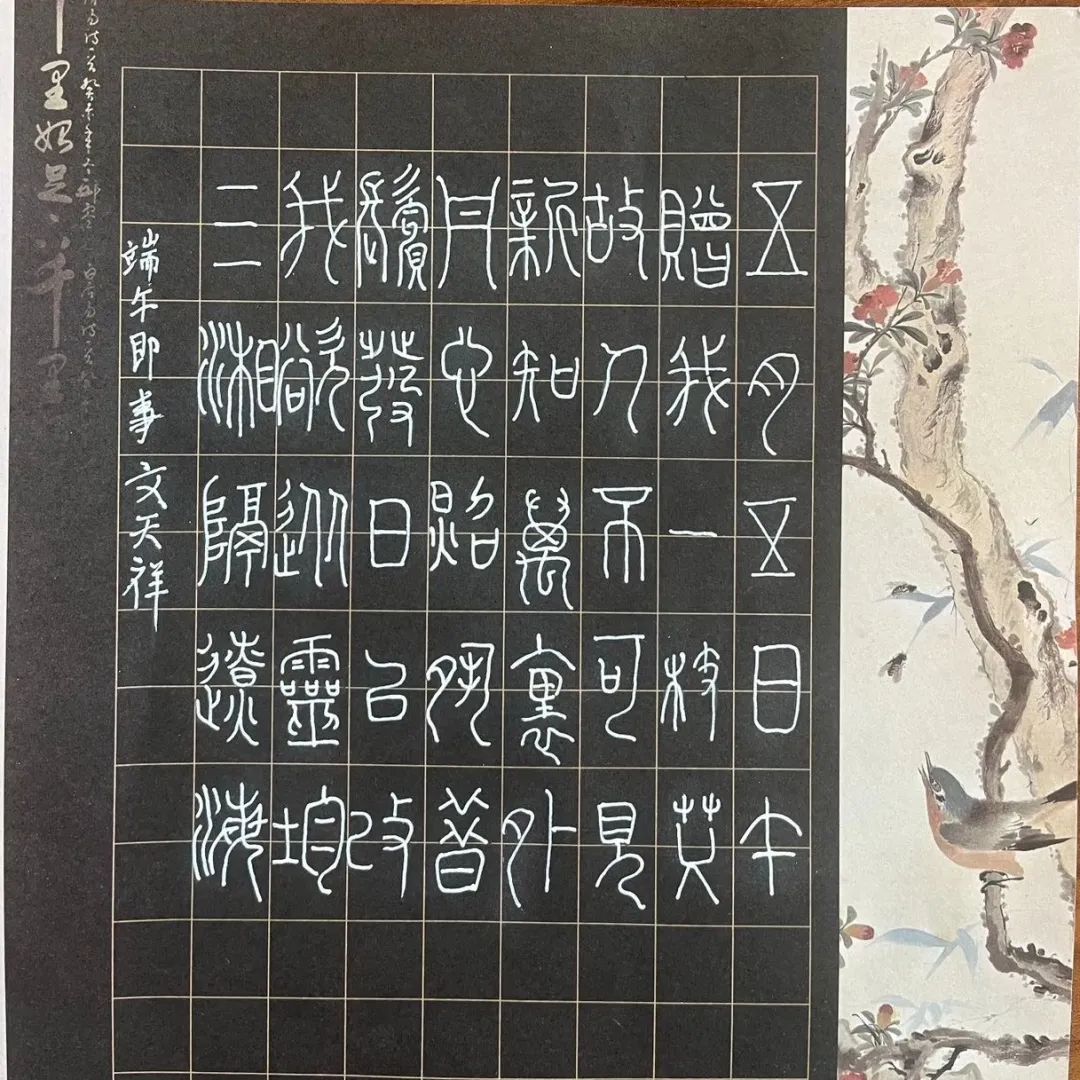 五月五日午
贈我一枝艾
故人不可見
新知萬裏外
丹心照夙昔
鬢發日已改
我欲從靈均
三湘隔遼海
端午即事 文天祥
里始足